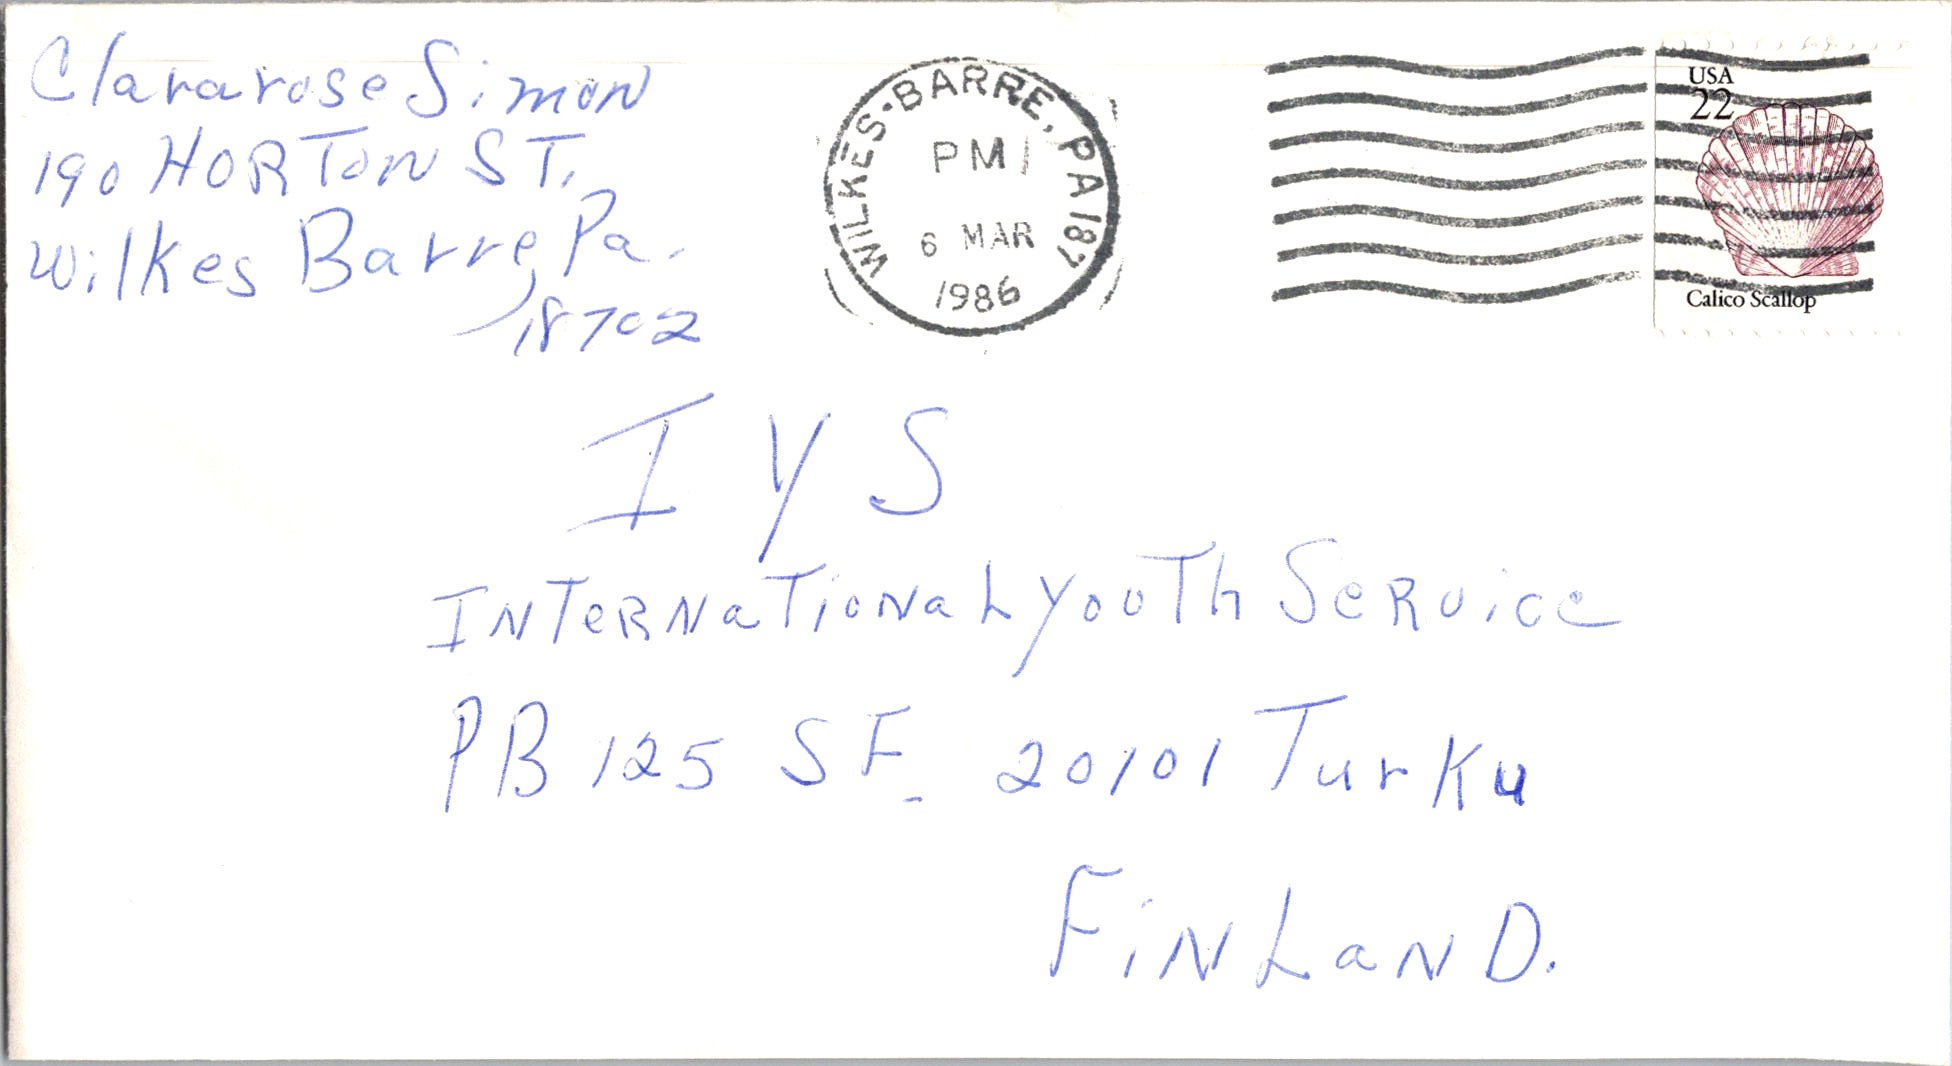 Clararose Simon
190 HORTON ST.
Wilkes Barre, Pa.
18702
WILKES-BARRE, PA 187
PM
6 MAR
1986
USA
22
Calico Scallop
I Y S
INTERNaTioNaL YouTh SeRvice
PB 125 SF. 20101 Turku
FiNLaND.